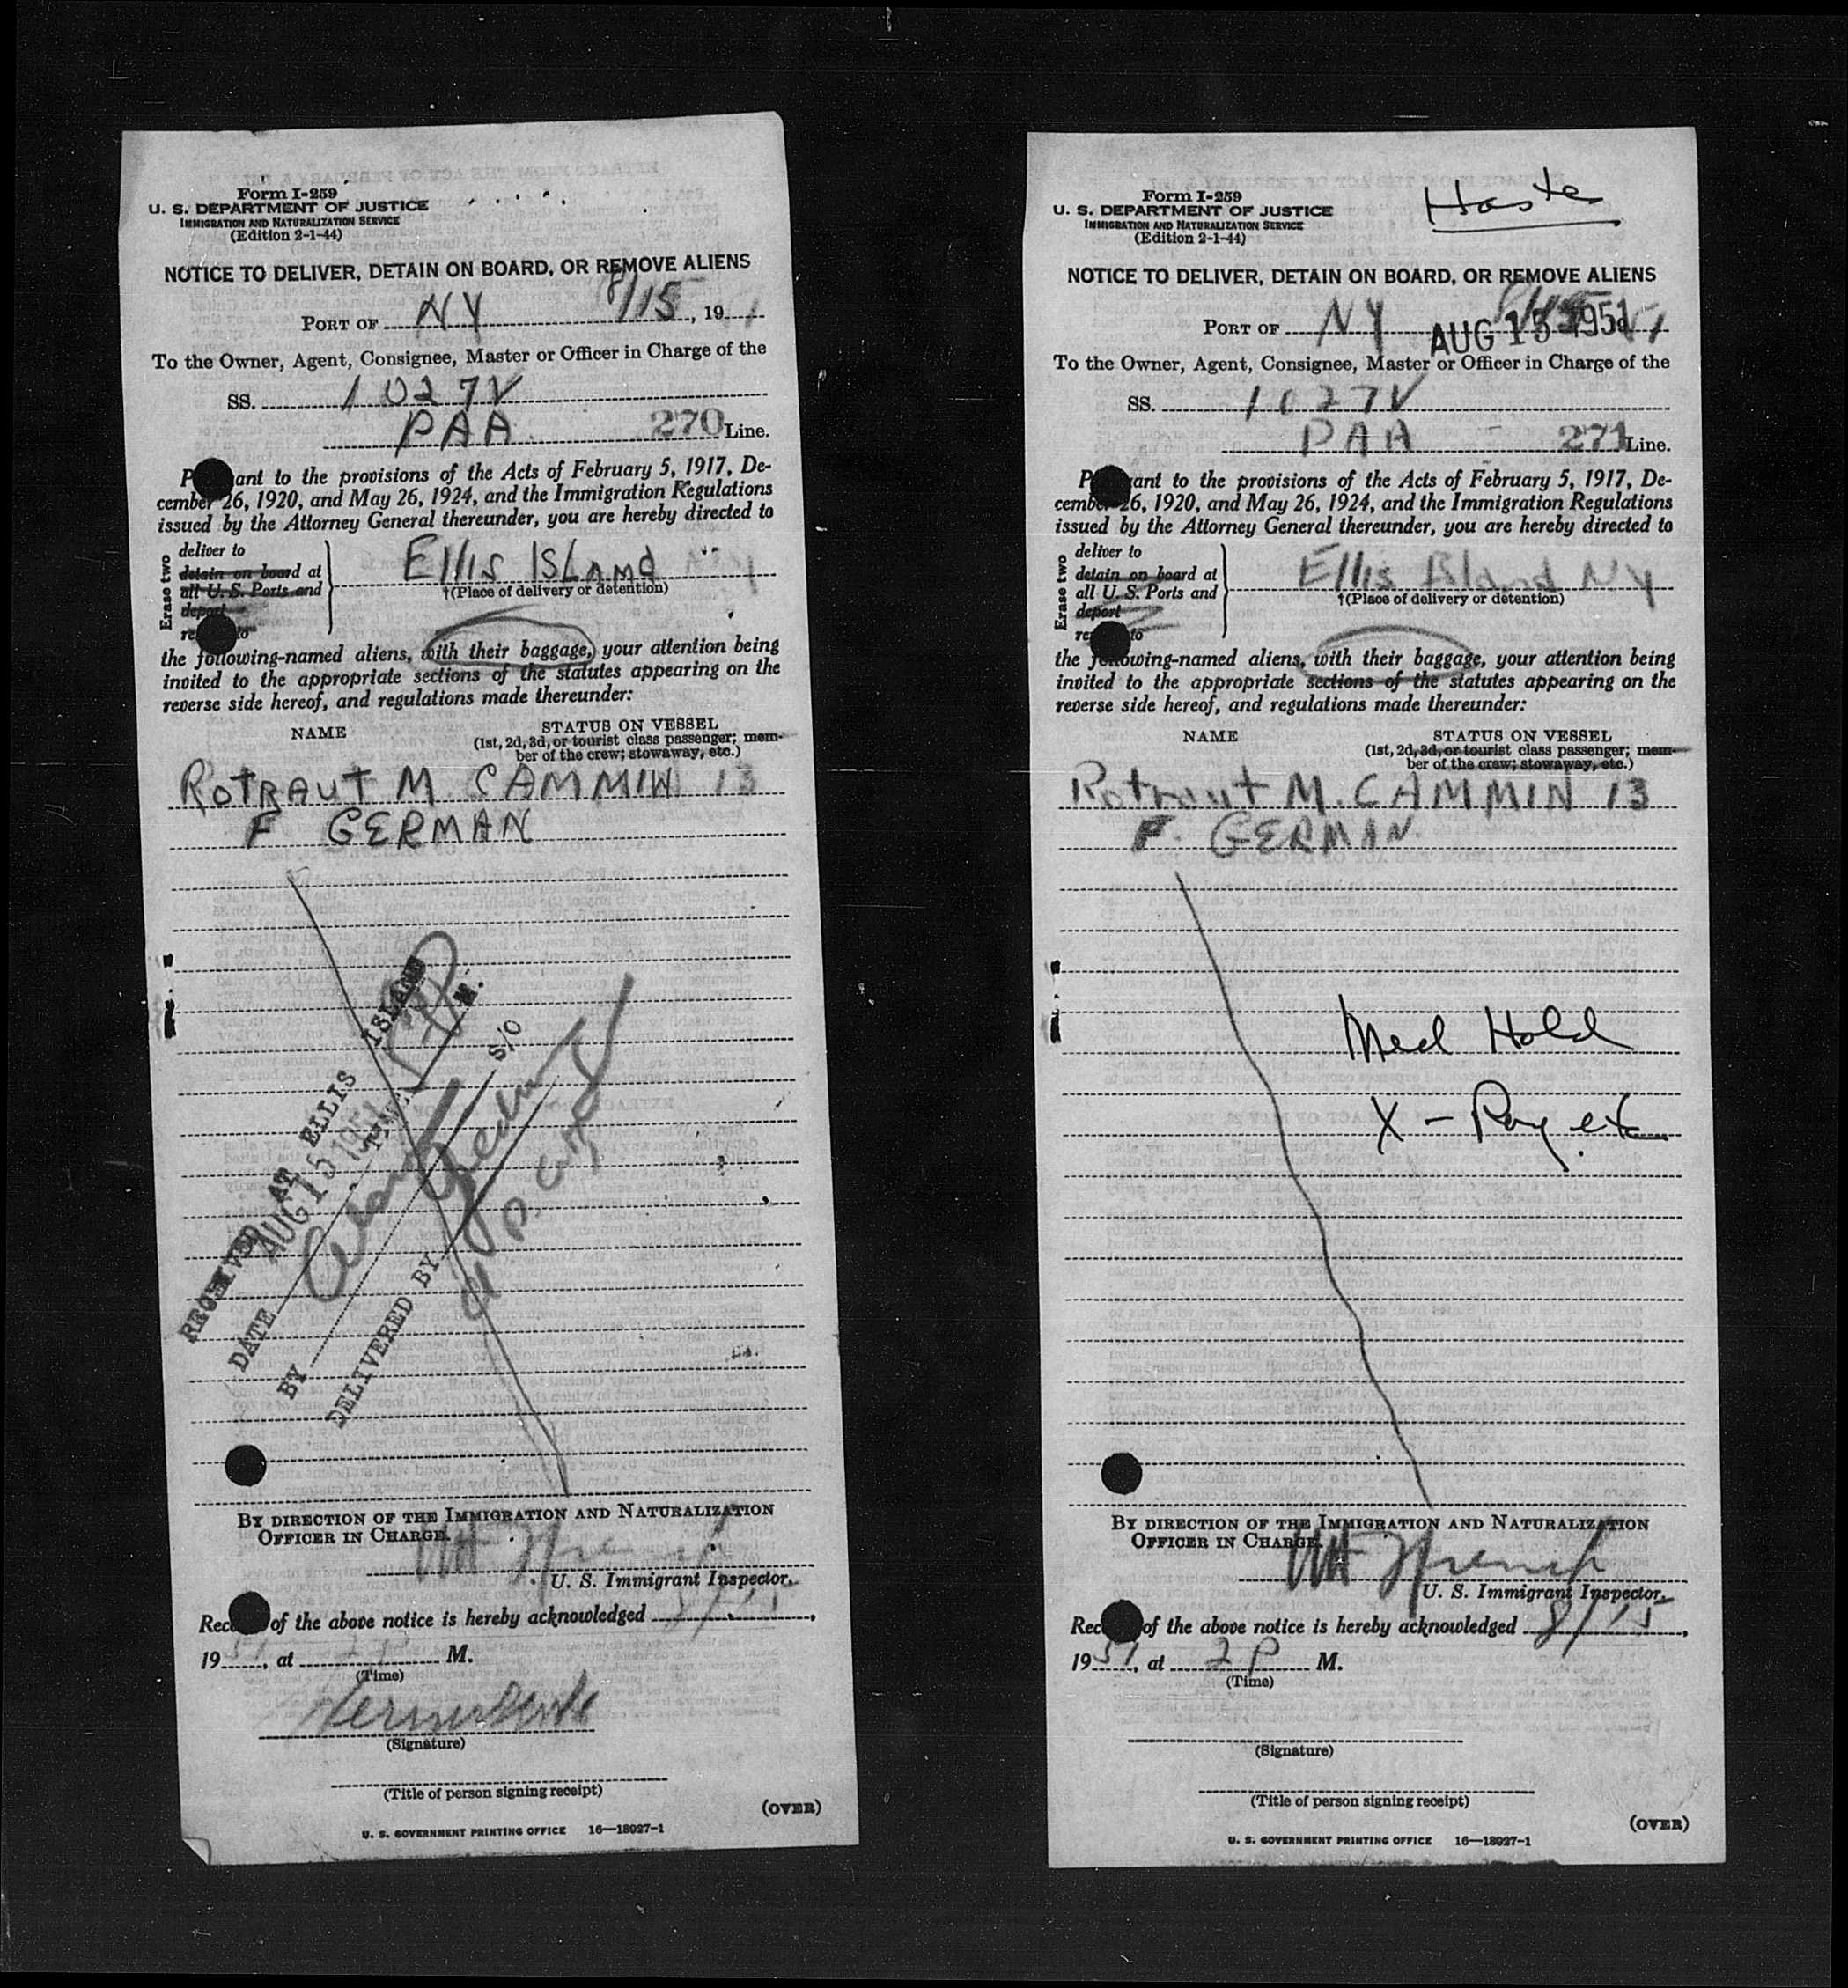 Form I-259
U. S. DEPARTMENT OF JUSTICE
IMMIGRATION AND NATURALIZATION SERVICE
(Edition 2-1-44)
NOTICE TO DELIVER, DETAIN ON BOARD, OR REMOVE ALIENS
PORT OF NY 8/15, 19
To the Owner, Agent, Consignee, Master or Officer in Charge of the
SS. 1027V
PAA 270 Line.
P ant to the provisions of the Acts of February 5, 1917, De-
cember 26, 1920, and May 26, 1924, and the Immigration Regulations
issued by the Attorney General thereunder, you are hereby directed to
Erase two
deliver to
detain on board at
all U. S. Ports and
deport
re to
Ellis Island
†(Place of delivery or detention)
the following-named aliens, with their baggage, your attention being
invited to the appropriate sections of the statutes appearing on the
reverse side hereof, and regulations made thereunder:
NAME STATUS ON VESSEL
(1st, 2d, 3d, or tourist class passenger; mem-
ber of the crew; stowaway, etc.)
ROTRAUT M CAMMIN 13
F GERMAN
RECEIVED AT ELLIS ISLAND
DATE AUG 15 1951 TIME M.
BY S/O
DELIVERED BY
BY DIRECTION OF THE IMMIGRATION AND NATURALIZATION
OFFICER IN CHARGE.
U. S. Immigrant Inspector.
Rec of the above notice is hereby acknowledged 8/15,
19 51, at 2 P M.
(Time)
(Signature)
(Title of person signing receipt)
(OVER)
U. S. GOVERNMENT PRINTING OFFICE 16—18927-1
Form I-259
U. S. DEPARTMENT OF JUSTICE
IMMIGRATION AND NATURALIZATION SERVICE
(Edition 2-1-44)
Haste
NOTICE TO DELIVER, DETAIN ON BOARD, OR REMOVE ALIENS
PORT OF NY AUG 15 1951
To the Owner, Agent, Consignee, Master or Officer in Charge of the
SS. 1027V
PAA 271 Line.
P ant to the provisions of the Acts of February 5, 1917, De-
cember 26, 1920, and May 26, 1924, and the Immigration Regulations
issued by the Attorney General thereunder, you are hereby directed to
Erase two
deliver to
detain on board at
all U. S. Ports and
deport
re to
Ellis Island NY
†(Place of delivery or detention)
the following-named aliens, with their baggage, your attention being
invited to the appropriate sections of the statutes appearing on the
reverse side hereof, and regulations made thereunder:
NAME STATUS ON VESSEL
(1st, 2d, 3d, or tourist class passenger; mem-
ber of the crew; stowaway, etc.)
Rotraut M. CAMMIN 13
F. GERMAN
Med Hold
X - Ray etc
BY DIRECTION OF THE IMMIGRATION AND NATURALIZATION
OFFICER IN CHARGE.
U. S. Immigrant Inspector.
Rec of the above notice is hereby acknowledged 8/15,
19 51, at 2 P M.
(Time)
(Signature)
(Title of person signing receipt)
(OVER)
U. S. GOVERNMENT PRINTING OFFICE 16—18927-1